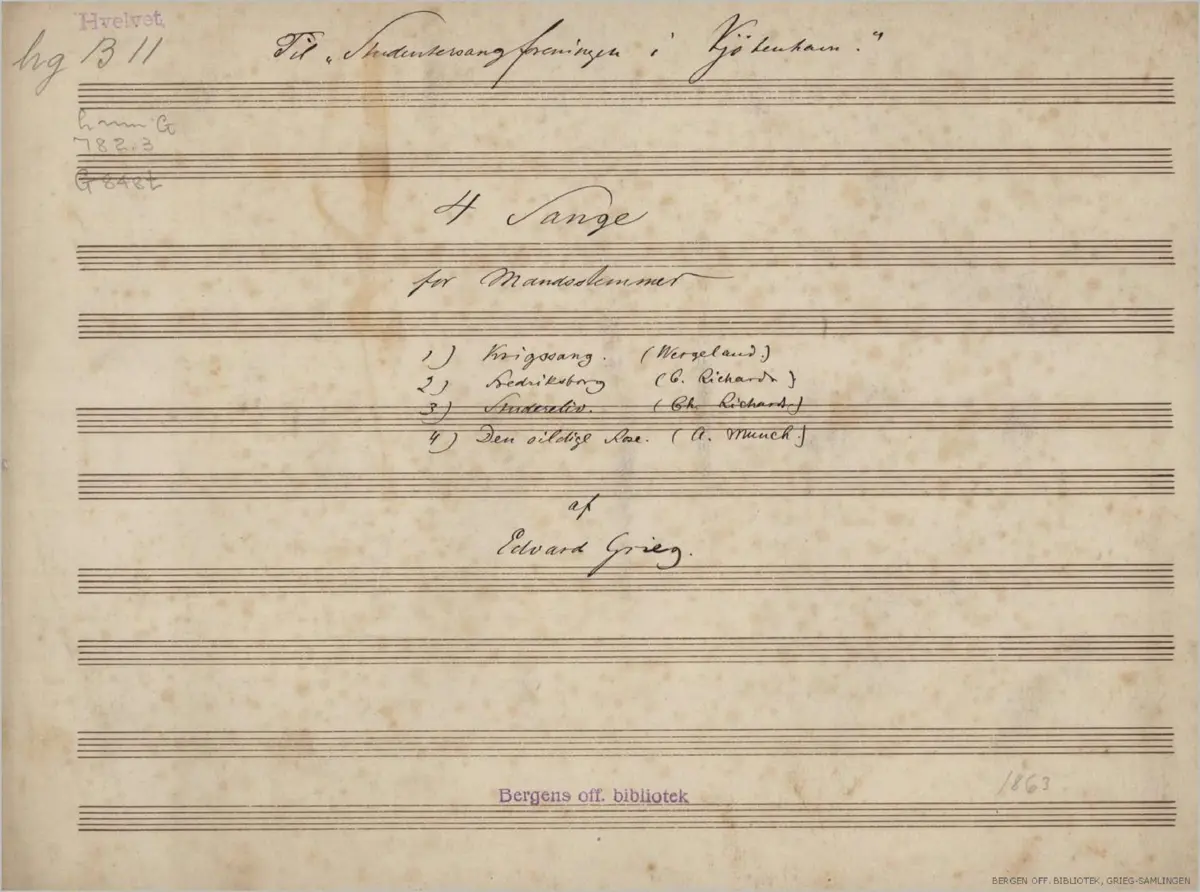 Hvelvet
hg B 11
Til „Studentersangforeningen i Kjöbenhavn."
hmm G
782.3
G 848t
4 Sange
for Mandsstemmer
1) Krigssang. (Wergeland.)
2) Fredriksborg (C. Richardt)
3) Studereliv. (Ch. Richardt)
4) Den sildige Rose. (A. Munch.)
af
Edvard Grieg.
1863
Bergens off. bibliotek
BERGEN OFF. BIBLIOTEK, GRIEG-SAMLINGEN